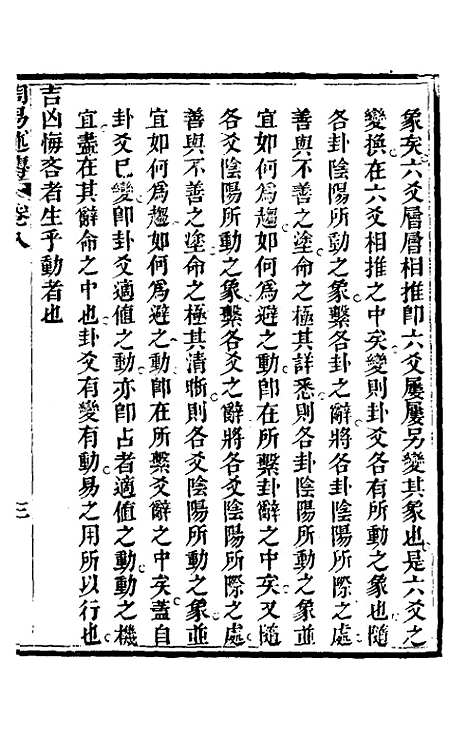 象矣六爻層層相推卽六爻屢屢另變其象也是六爻之
變換在六爻相推之中矣變則卦爻各有所動之象也隨
各卦陰陽所動之象繫各卦之辭將各卦陰陽所際之處
善與不善之塗命之極其詳悉則各卦陰陽所動之象並
宜如何爲趨如何爲避之動卽在所繫卦辭之中矣又隨
各爻陰陽所動之象繫各爻之辭將各爻陰陽所際之處
善與不善之塗命之極其清晰則各爻陰陽所動之象並
宜如何爲趨如何爲避之動卽在所繫爻辭之中矣蓋自
卦爻已變卽卦爻適值之動亦卽占者適值之動動之機
宜盡在其辭命之中也卦爻有變有動易之用所以行也
吉凶悔吝者生乎動者也
周易述傳 卷八 三